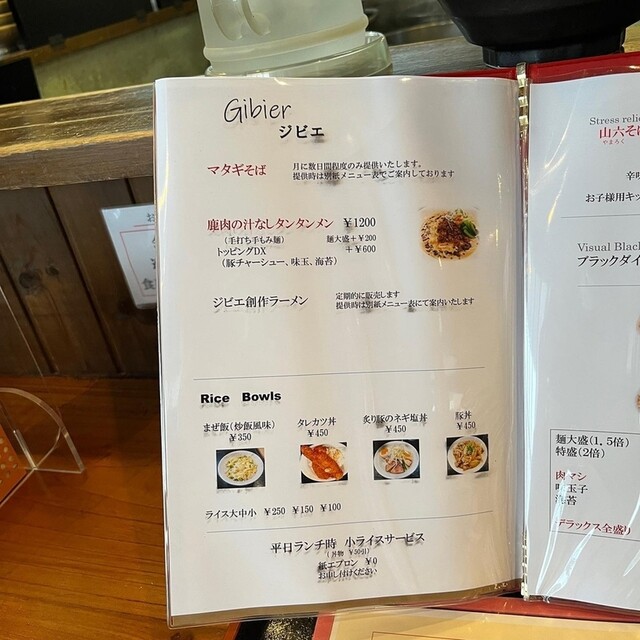 Gibier
ジビエ
マタギそば
月に数日間程度のみ提供いたします。
提供時は別紙メニュー表でご案内しております
鹿肉の汁なしタンタンメン ¥1200
(手打ち手もみ麺) 麺大盛+¥200
トッピングDX +¥600
(豚チャーシュー、味玉、海苔)
ジビエ創作ラーメン
定期的に販売します
提供時は別紙メニュー表にて案内いたします
Rice Bowls
まぜ飯(炒飯風味)
¥350
タレカツ丼
¥450
炙り豚のネギ塩丼
¥450
豚丼
¥450
ライス大中小 ¥250 ¥150 ¥100
平日ランチ時 小ライスサービス
紙エプロン ¥0
お申し付けください
Stress relie
山六そば
やまろく
辛味
お子様用キッ
Visual Black
ブラックダイ
麺大盛(1.5倍)
特盛(2倍)
肉マシ
味玉子
海苔
デラックス全盛り